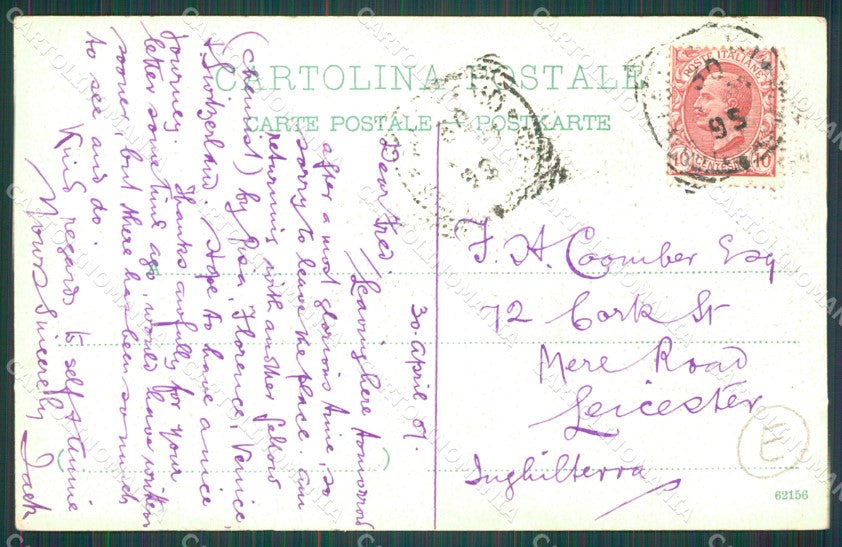 CARTOLINA POSTALE
CARTE POSTALE POSTKARTE
30. April 07.
Dear Fred.
Leaving here tomorrow
after a most glorious time, so
sorry to leave the place. am
returning with another fellow
(chemist) by Pisa, Florence, Venice,
& Switzerland. Hope to have a nice
journey. Thanks awfully for your
letter some time ago, would have written
sooner, but there has been so much
to see and do.
Kind regards to self & Annie
Yours Sincerely Jack
POSTE ITALIANE
10 CENTESIMI 10
F. H. Coomber Esq
72 Cork St
Mere Road
Leicester
Inghilterra
E
62156
CARTOLINOMANIA